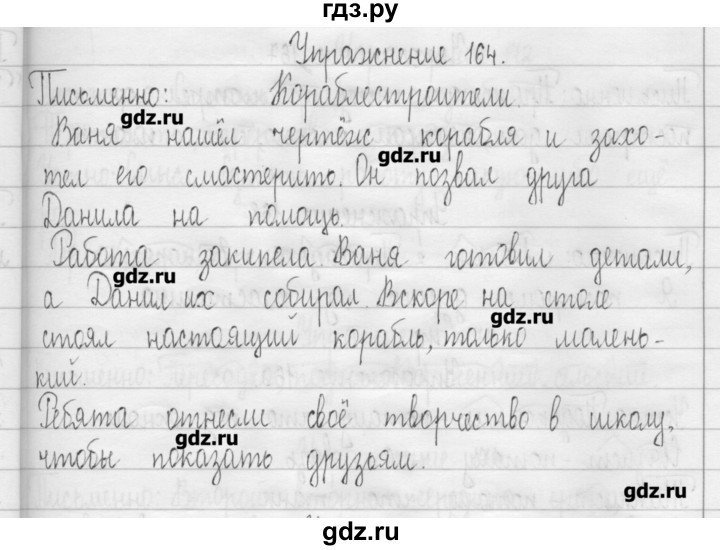 гдз.ру
Упражнение 164.
Письменно: Кораблестроители.
gdz.ru
Ваня нашёл чертёж корабля и захо-
gdz.ru
тел его смастерить. Он позвал друга
Данила на помощь.
Работа закипела. Ваня готовил детали,
gdz.ru
а Данил их собирал. Вскоре на столе
gdz.ru
стоял настоящий корабль, только малень-
кий.
Ребята отнесли своё творчество в школу,
gdz.ru
чтобы показать друзьям.
gdz.ru
gdz.ru